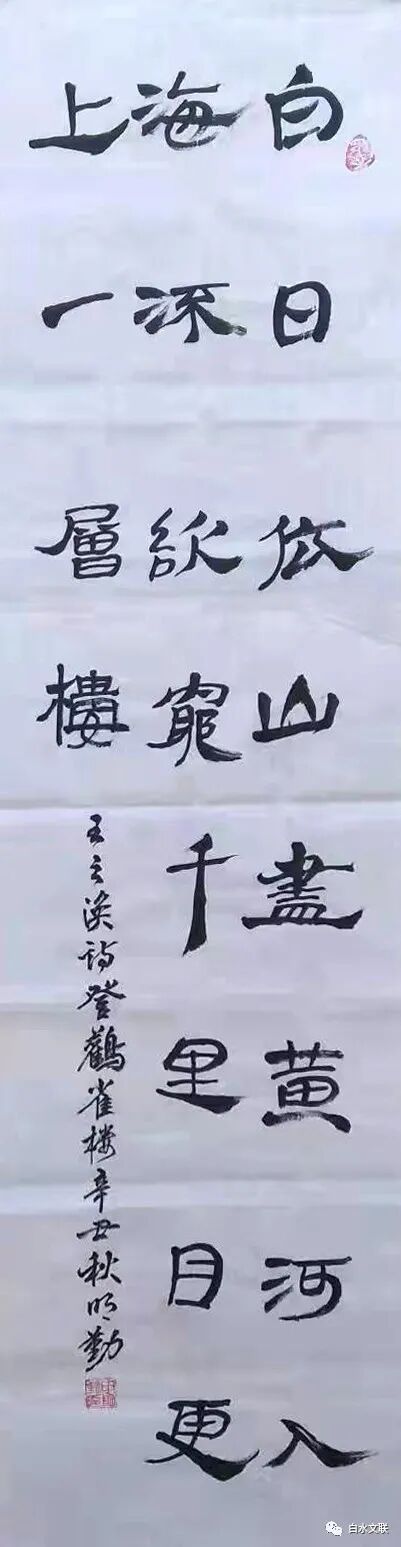 白日依山盡黄河入
海流欲窮千里目更
上一層樓
王之涣诗登鸛雀楼辛丑秋明勤
白水文联